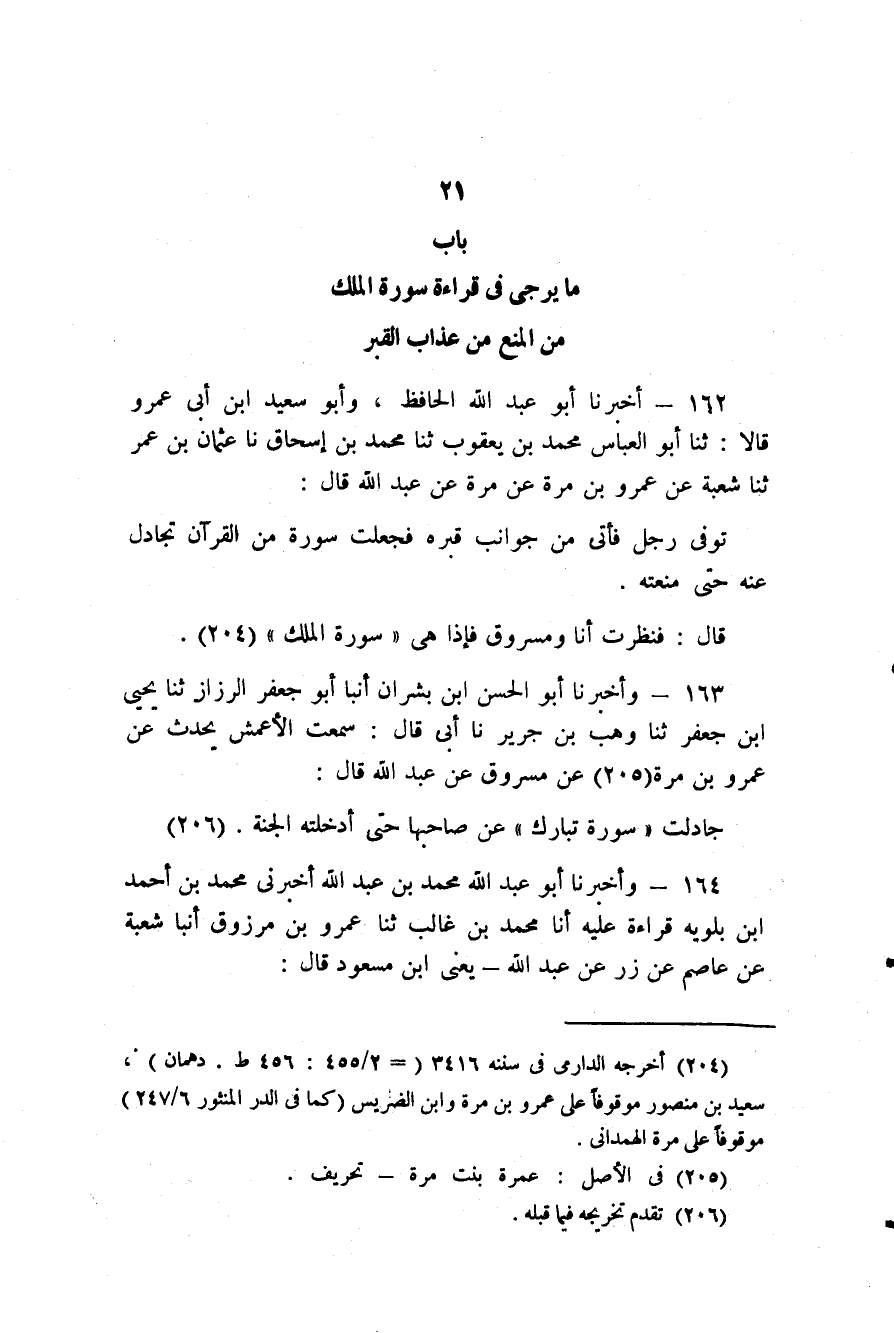 ٢١
باب
ما يرجى فى قراءة سورة الملك
من المنع من عذاب القبر
١٦٢ – أخبرنا أبو عبد الله الحافظ ، وأبو سعيد ابن أبى عمرو
قالا : ثنا أبو العباس محمد بن يعقوب ثنا محمد بن إسحاق نا عثمان بن عمر
ثنا شعبة عن عمرو بن مرة عن مرة عن عبد الله قال :
توفى رجل فأتى من جوانب قبره فجعلت سورة من القرآن تجادل
عنه حتى منعته .
قال : فنظرت أنا ومسروق فإذا هى « سورة الملك » (٢٠٤) .
١٦٣ – وأخبرنا أبو الحسن ابن بشران أنبا أبو جعفر الرزاز ثنا يحيى
ابن جعفر ثنا وهب بن جرير نا أبى قال : سمعت الأعمش يحدث عن
عمرو بن مرة(٢٠٥) عن مسروق عن عبد الله قال :
جادلت « سورة تبارك » عن صاحبها حتى أدخلته الجنة . (٢٠٦)
١٦٤ – وأخبرنا أبو عبد الله محمد بن عبد الله أخبرنى محمد بن أحمد
ابن بلويه قراءة عليه أنا محمد بن غالب ثنا عمرو بن مرزوق أنبا شعبة
عن عاصم عن زر عن عبد الله – يعنى ابن مسعود قال :
(٢٠٤) أخرجه الدارمى فى سننه ٣٤١٦ ( = ٤٥٥/٢ : ٤٥٦ ط . دهمان ) ،
سعيد بن منصور موقوفاً على عمرو بن مرة وابن الضريس (كما فى الدر المنثور ٢٤٧/٦ )
موقوفاً على مرة الهمدانى .
(٢٠٥) فى الأصل : عمرة بنت مرة – تحريف .
(٢٠٦) تقدم تخريجه فيما قبله .